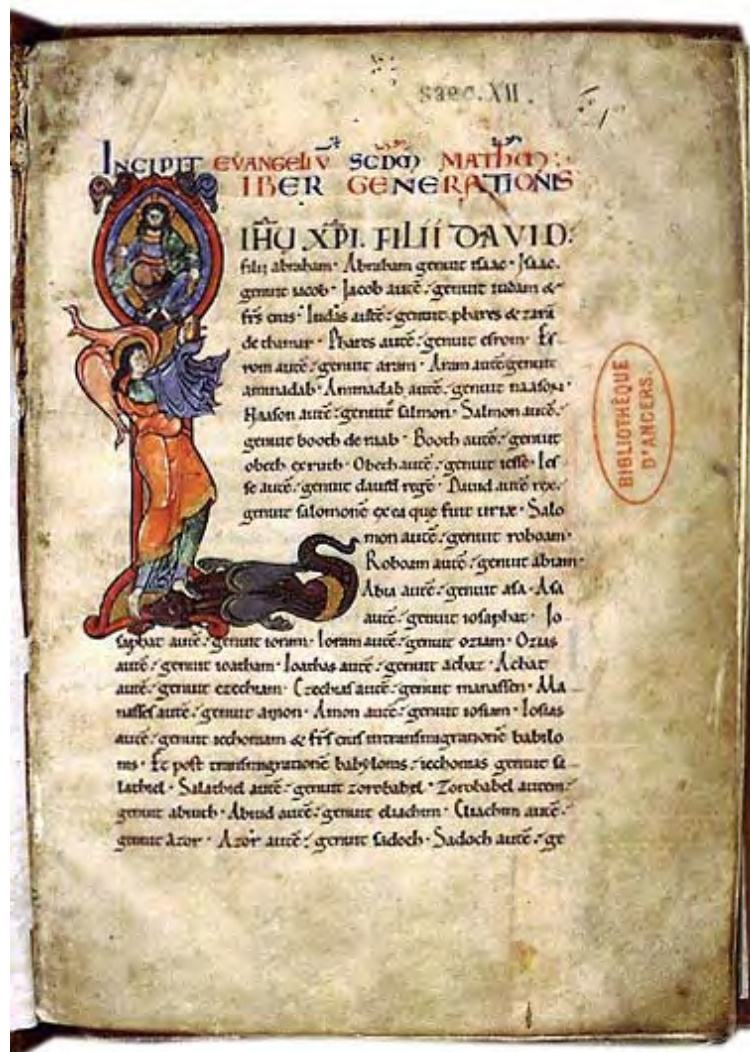 saec. XII.
INCIPIT EVANGELIV̄ SCDM MATHM:
IBER GENERATIONIS
IHU XPI. FILII DAVID.
filii abraham · Abraham genuit isaac · Isaac
genuit iacob · Iacob autē genuit iudam &
frs eius · Iudas autē genuit phares & zarā
de thamar · Phares autē genuit esrom · Es
rom autē genuit aram · Aram autē genuit
aminadab · Aminadab autē genuit naason ·
Naason autē genuit salmon · Salmon autē
genuit booth de raab · Booth autē genuit
obeth ex ruth · Obeth autē genuit iesse · Ies
se autē genuit dauid regē · Dauid autē rex
genuit salomonē ex ea que fuit uriæ · Salo
mon autē genuit roboam ·
Roboam autē genuit abiam ·
Abia autē genuit asa · Asa
autē genuit iosaphat · Io
saphat autē genuit ioram · Ioram autē genuit oziam · Ozias
autē genuit ioatham · Ioathas autē genuit achaz · Achat
autē genuit ezechiam · Ezechias autē genuit manassen · Ma
nasses autē genuit amon · Amon autē genuit iosiam · Iosias
autē genuit iechoniam & frs eius in transmigrationē babilo
nis · Et post transmigrationē babylonis iechonias genuit sa
lathiel · Salathiel autē genuit zorobabel · Zorobabel autem
genuit abiuth · Abiud autē genuit eliachim · Eliachim autē
genuit azor · Azor autē genuit sadoch · Sadoch autē ge
BIBLIOTHÈQUE
D'ANGERS.